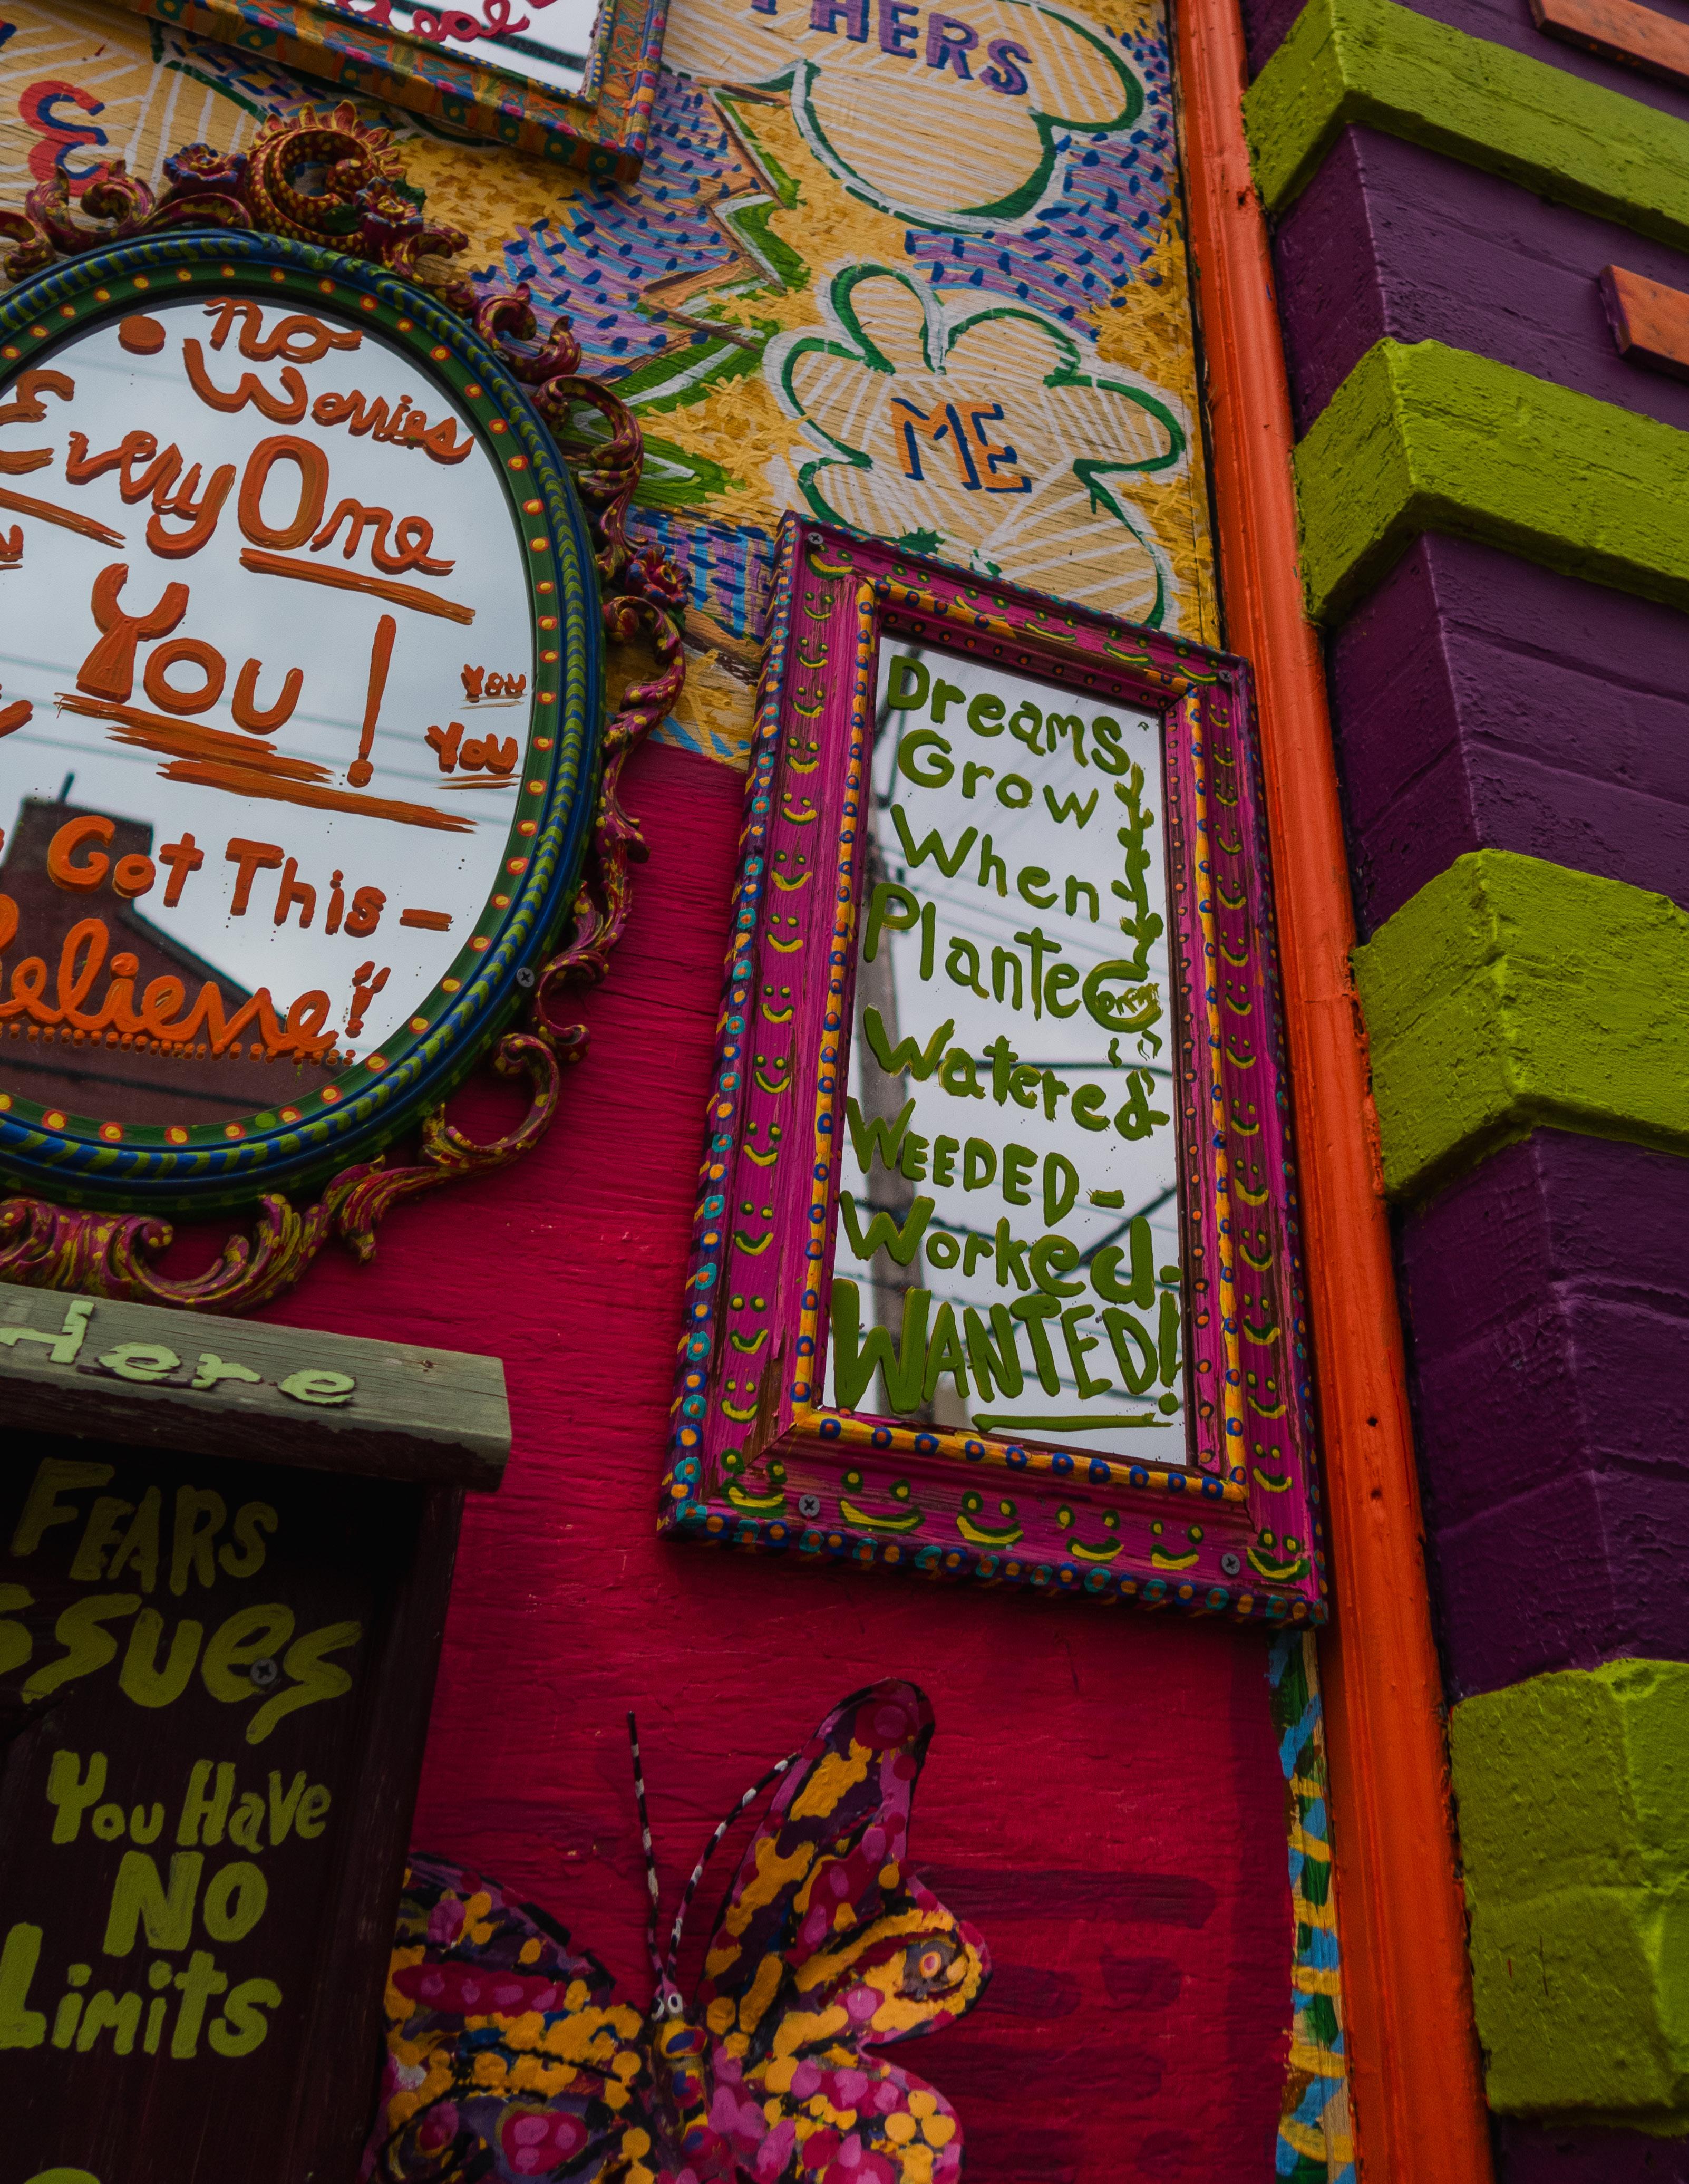 THERS
3
ME
no
Worries
EveryOne
You!
You
You
Got This -
Believe!
Dreams
Grow
When
Planted
Watered &
WEEDED -
Worked -
WANTED!
Here
FEARS
Issues
You Have
NO
Limits